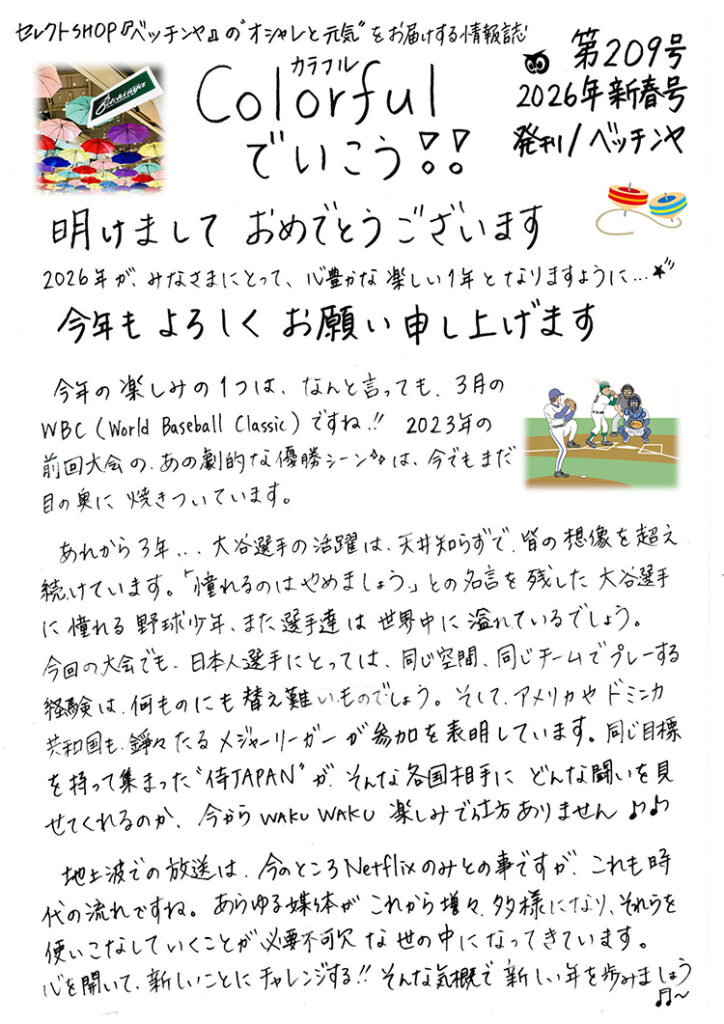 セレクトSHOP『ベッチンヤ』の"オシャレと元気"をお届けする情報誌
カラフル
Colorful
でいこう!!
第209号
2026年新春号
発刊/ベッチンヤ
明けまして おめでとうございます
2026年が、みなさまにとって、心豊かな楽しい1年となりますように...
今年もよろしくお願い申し上げます
今年の楽しみの1つは、なんと言っても、3月の
WBC(World Baseball Classic)ですね!! 2023年の
前回大会の、あの劇的な優勝シーンは、今でもまだ
目の奥に焼きついています。
あれから3年...大谷選手の活躍は、天井知らずで、皆の想像を超え
続けています。「憧れるのはやめましょう。」との名言を残した大谷選手
に憧れる野球少年、また選手達は世界中に溢れているでしょう。
今回の大会でも、日本人選手にとっては、同じ空間、同じチームでプレーする
経験は、何ものにも替え難いものでしょう。そして、アメリカやドミニカ
共和国も、錚々たるメジャーリーガーが参加を表明しています。同じ目標
を持って集まった"侍JAPAN"が、そんな各国相手にどんな闘いを見
せてくれるのか、今からWAKU WAKU 楽しみで仕方ありません♪♪
地上波での放送は、今のところNetflixのみとの事ですが、これも時
代の流れですね。あらゆる媒体がこれから増々、多様になり、それらを
使いこなしていくことが必要不可欠な世の中になってきています。
心を開いて、新しいことにチャレンジする!! そんな気概で新しい年を歩みましょう
♬〜